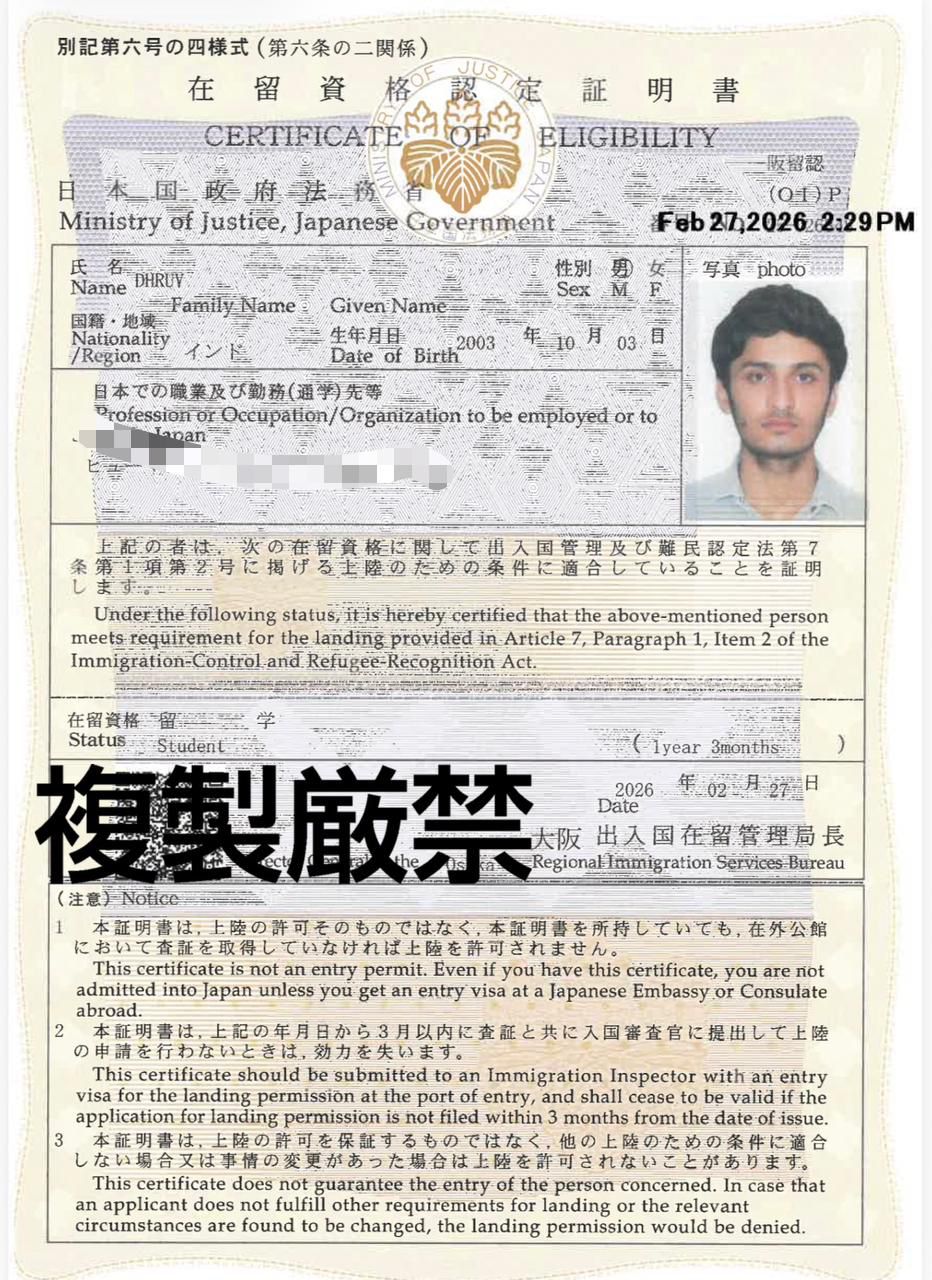 別記第六号の四様式(第六条の二関係)
在留資格認定証明書
CERTIFICATE OF ELIGIBILITY
MINISTRY OF JUSTICE JAPAN
阪留認
日本国政府法務省
(O-I) P
Ministry of Justice, Japanese Government
Feb 27,2026 2:29 PM
氏名
Name DHRUV
Family Name Given Name
性別 男 女
Sex M F
写真 photo
国籍・地域
Nationality
/Region インド
生年月日
Date of Birth 2003 年 10 月 03 日
日本での職業及び勤務(通学)先等
Profession or Occupation/Organization to be employed or to
Japan
上記の者は, 次の在留資格に関して出入国管理及び難民認定法第7
条第1項第2号に掲げる上陸のための条件に適合していることを証明
します。
Under the following status, it is hereby certified that the above-mentioned person
meets requirement for the landing provided in Article 7, Paragraph 1, Item 2 of the
Immigration-Control and Refugee-Recognition Act.
在留資格 留 学
Status Student
( 1year 3months )
複製厳禁
2026 年 02 月 27 日
Date
大阪 出入国在留管理局長
the Osaka Regional Immigration Services Bureau
(注意) Notice
1 本証明書は, 上陸の許可そのものではなく, 本証明書を所持していても, 在外公館
において査証を取得していなければ上陸を許可されません。
This certificate is not an entry permit. Even if you have this certificate, you are not
admitted into Japan unless you get an entry visa at a Japanese Embassy or Consulate
abroad.
2 本証明書は, 上記の年月日から3月以内に査証と共に入国審査官に提出して上陸
の申請を行わないときは, 効力を失います。
This certificate should be submitted to an Immigration Inspector with an entry
visa for the landing permission at the port of entry, and shall cease to be valid if the
application for landing permission is not filed within 3 months from the date of issue.
3 本証明書は, 上陸の許可を保証するものではなく, 他の上陸のための条件に適合
しない場合又は事情の変更があった場合は上陸を許可されないことがあります。
This certificate does not guarantee the entry of the person concerned. In case that
an applicant does not fulfill other requirements for landing or the relevant
circumstances are found to be changed, the landing permission would be denied.